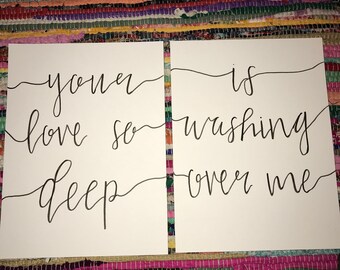 your
love so
deep
is
washing
over me